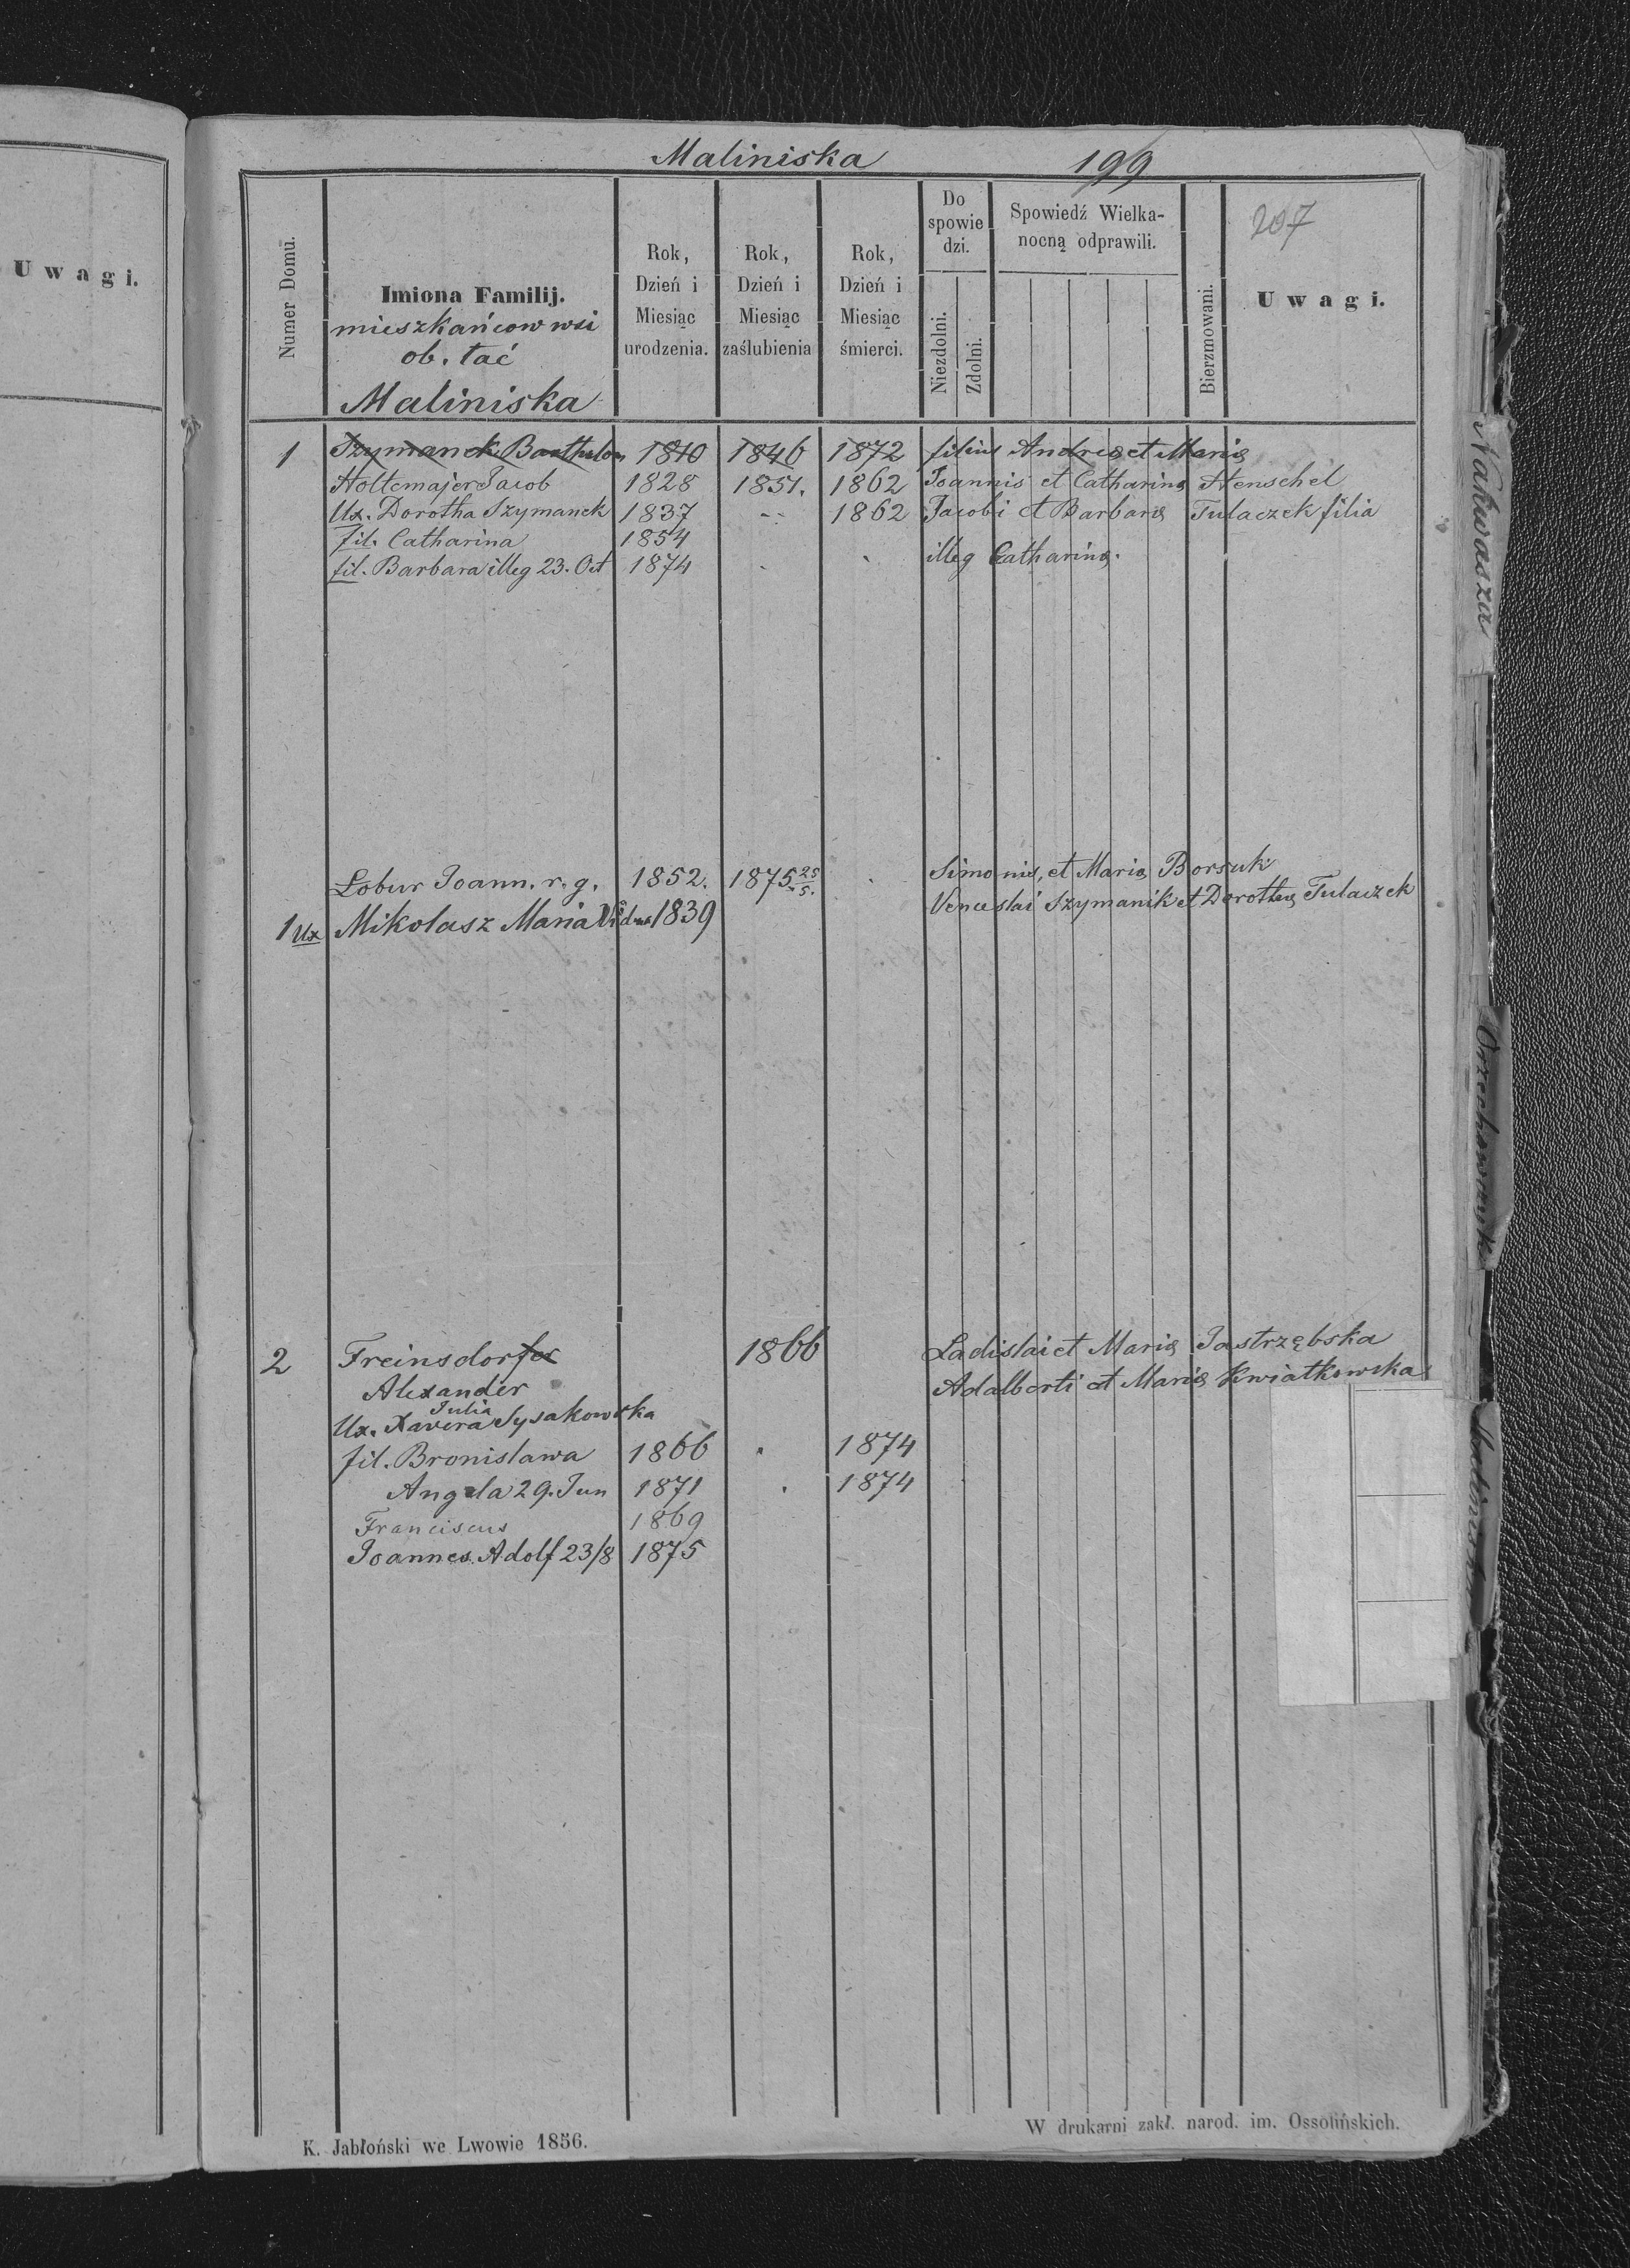 Uwagi.
Maliniska 199
Numer Domu.
Imiona Familij.
mieszkańcow wsi
ob. łać
Maliniska
Rok,
Dzień i
Miesiąc
urodzenia.
Rok,
Dzień i
Miesiąc
zaślubienia
Rok,
Dzień i
Miesiąc
śmierci.
Do
spowie
dzi.
Niezdolni.
Zdolni.
Spowiedź Wielka-
nocną odprawili.
Bierzmowani.
207
Uwagi.
1 Szymanek Barthelom 1810 1846 1872 filius Andreæ et Mariæ
Holtemajer Jacob 1828 1851. 1862 Joannis et Catharinæ Henschel
Ux. Dorotha Szymanek 1837 -- 1862 Jacobi et Barbaræ Tulaczek filia
fil. Catharina 1854
fil. Barbara illeg 23. Oct 1874 illeg Catharinæ.
Łobur Joann. r. g. 1852. 1875 25/5. Simonis, et Mariæ Borsuk
1 Ux Mikolasz Maria Vidua 1839 Venceslai Szymanik et Dorotheæ Tulaczek
2 Freinsdorfer 1866 Ladislai et Mariæ Jastrzębska
Alexander Adalberti et Mariæ Kwiatkowska
Julia
Ux. Xavera Sysakowska
fil. Bronisława 1866 1874
Angela 29. Jun 1871 1874
Franciscus 1869
Joannes Adolf 23/8 1875
Nakwasza
K. Jabłoński we Lwowie 1856.
W drukarni zakł. narod. im. Ossolińskich.